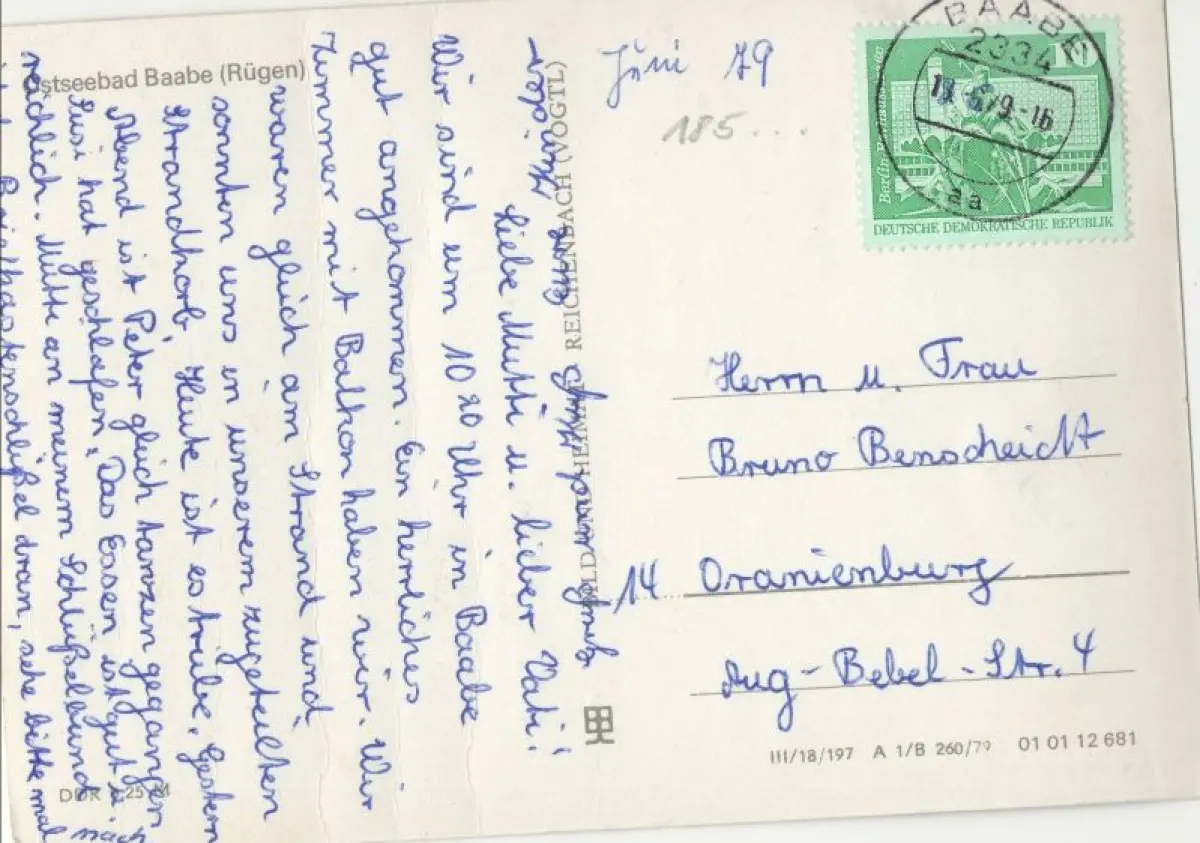 Ostseebad Baabe (Rügen)
Juni 79
185...
BAABE
2334
-6.79-16
aa
10
DEUTSCHE DEMOKRATISCHE REPUBLIK
Liebe Mutti u. lieber Vati!
Wir sind um 10 20 Uhr in Baabe
gut angekommen. Ein herrliches
Zimmer mit Balkon haben wir. Wir
waren gleich am Strand und
sonnten uns in unserem zugeteilten
Strandkorb. Heute ist es trübe. Gestern
Abend ist Peter gleich tanzen gegangen
Susi hat geschlafen. Das Essen ist gut u.
reichlich. Mutti an meinem Schlüßelbund
Briefkastenschlüßel dran, sehe bitte mal
nach
BILD UND HEIMAT REICHENBACH (VOGTL)
Herrn u. Frau
Bruno Benscheidt
14 Oranienburg
Aug-Bebel-Str. 4
III/18/197 A 1/B 260/79 01 01 12 681
DDR 25 M